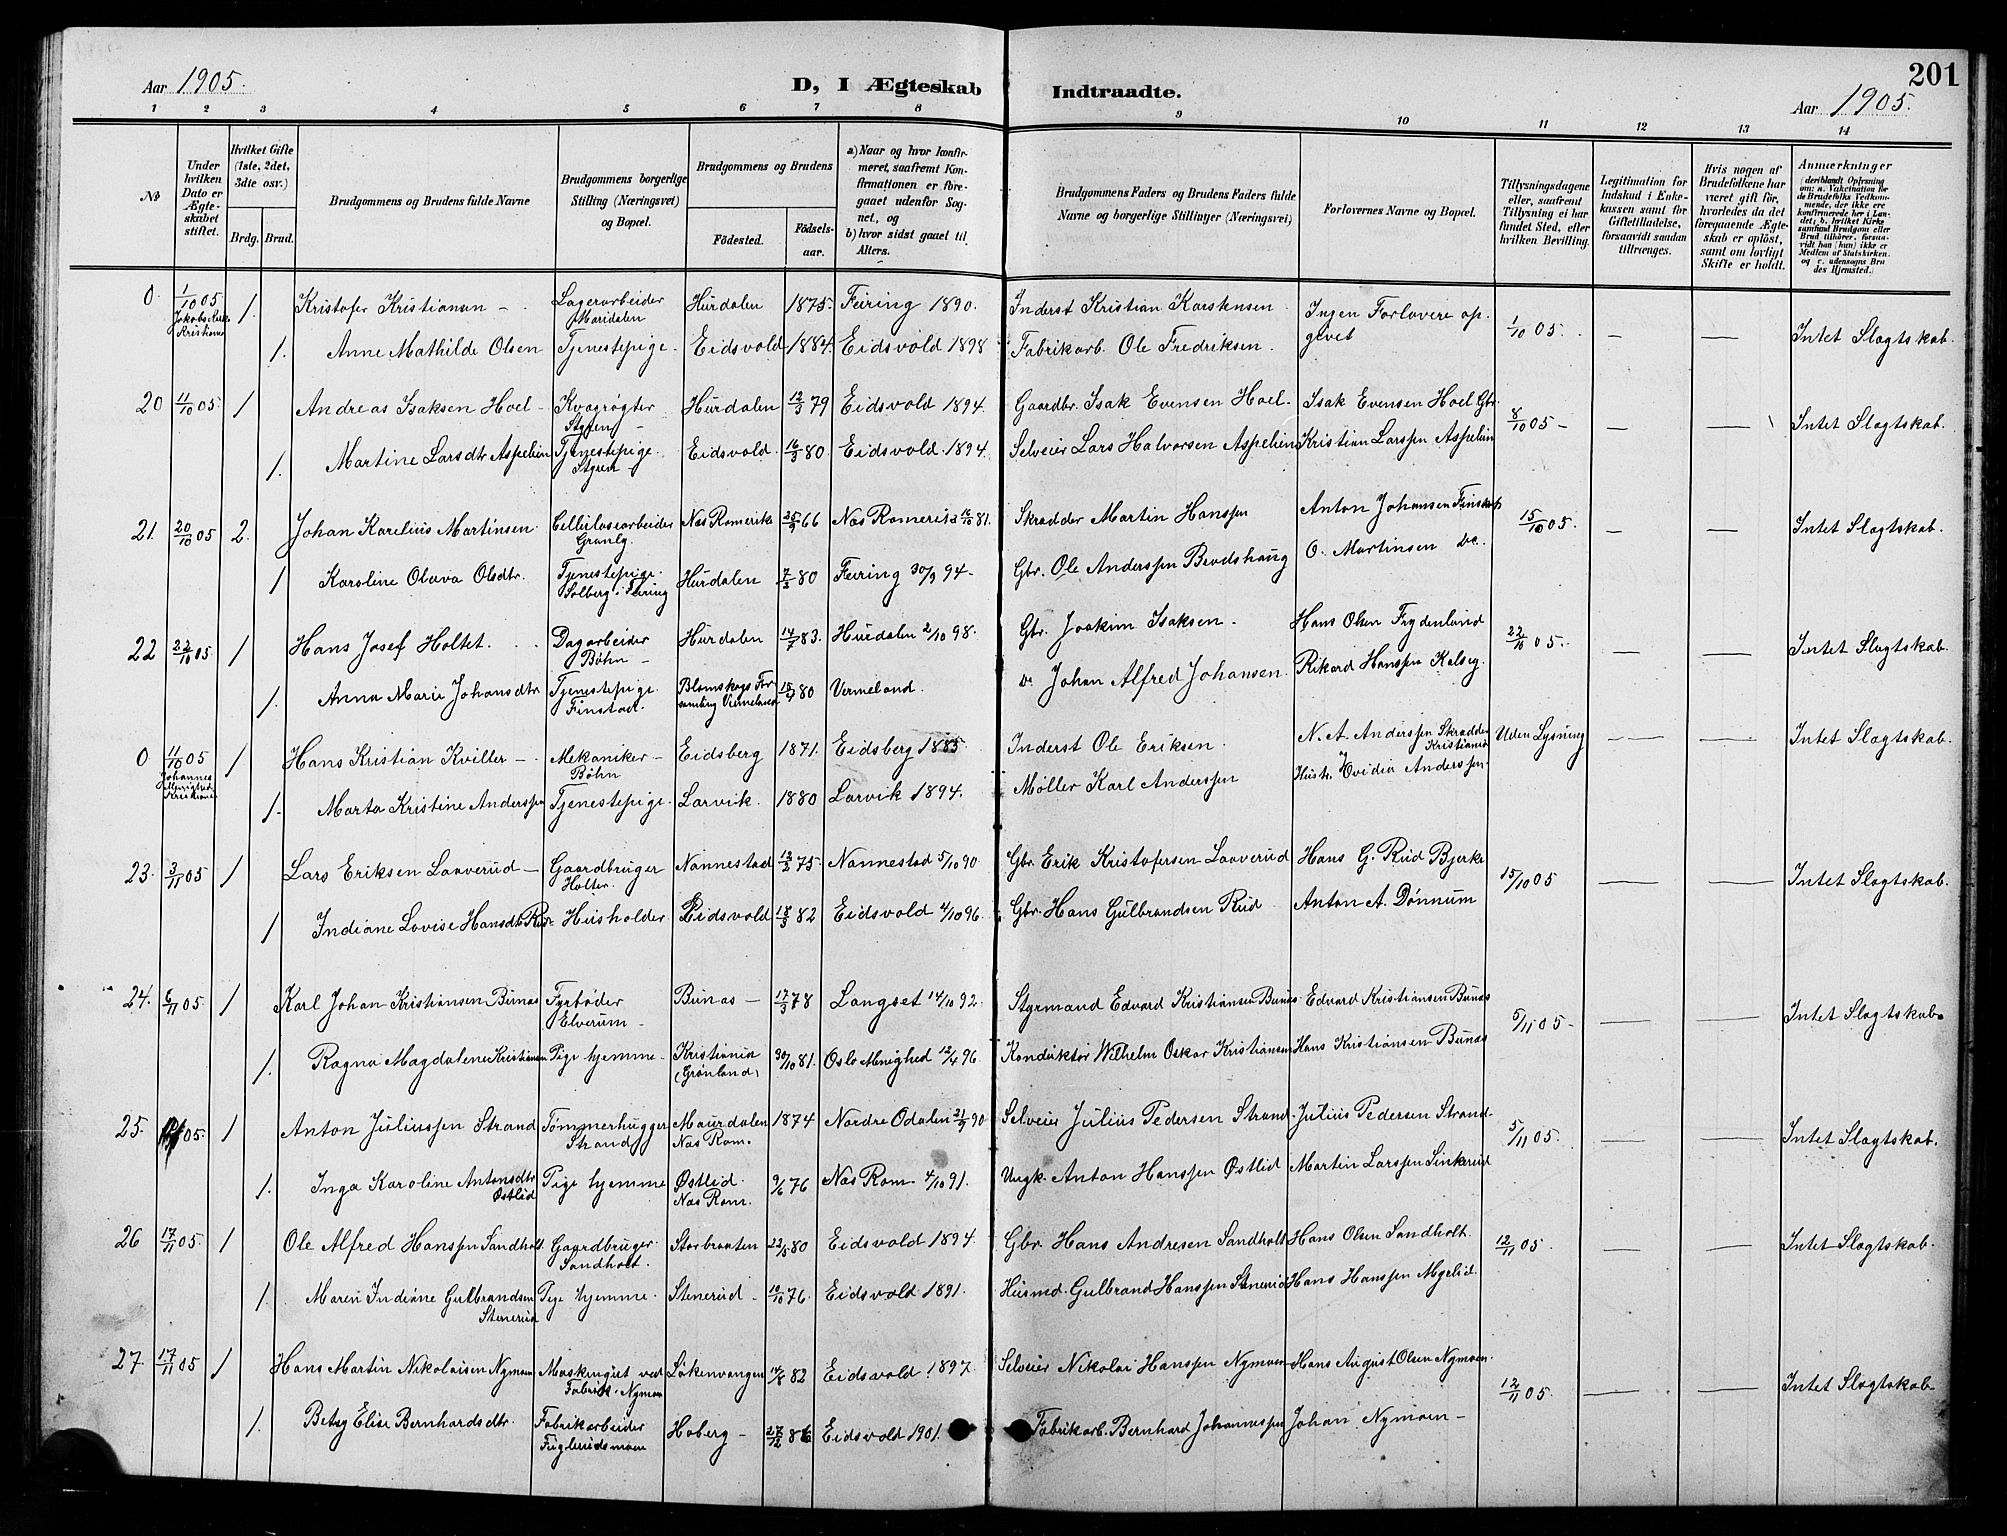 201
Aar 1905.
D, I Ægteskab Indtraadte.
Aar 1905.
1 2 3 4 5 6 7 8 9 10 11 12 13 14
No
Under hvilken Dato er Ægteskabet stiftet.
Hvilket Gifte (1ste, 2det, 3die osv.)
Brdg. Brud.
Brudgommens og Brudens fulde Navne
Brudgommens borgerlige Stilling (Næringsvei) og Bopæl.
Brudgommens og Brudens
Fødested.
Fødselsaar.
a) Naar og hvor konfirmeret, saafremt Konfirmationen er foregaaet udenfor Sognet, og
b) hvor sidst gaaet til Alters.
Brudgommens Faders og Brudens Faders fulde Navne og borgerlige Stillinger (Næringsvei)
Forlovernes Navne og Bopæl.
Tillysningsdagene eller, saafremt Tillysning ei har fundet Sted, efter hvilken Bevilling.
Legitimation for Indskud i Enkekassen samt for Giftetilladelse, forsaavidt saadan tiltrænges.
Hvis nogen af Brudefolkene har været gift før, hvorledes da det foregaaende Ægteskab er opløst, samt om lovligt Skifte er holdt.
Anmerkninger (deriblandt Oplysning om: a. Vakcination for de Brudefolks Vedkommende, der ikke ere konfirmerede her i Landet; b. hvilket Kirkesamfund Brudgom eller Brud tilhører, forsaavidt han (hun) ikke er Medlem af Statskirken, og c. udensogns Brudes Hjemsted.)
0 1/10 05 Jakobs Kirke Kristiania 1. Kristofer Kristiansen - Lagerarbeider Maridalen Hurdalen 1875. Feiring 1890. Inderst Kristian Karstensen Ingen Forlovere opgivet 1/10 05. — — Intet Slagtskab.
1. Anne Mathilde Olsen Tjenestepige. Eidsvold 1884. Eidsvold 1898 Fabrikarb. Ole Fredriksen.
20 11/10 05. 1 Andreas Isaksen Hoel - Kvægrøgter Styren Hurdalen 12/3 79 Eidsvold 1894. Gaardbr. Isak Evensen Hoel - Isak Evensen Hoel Gbr. 8/10 05 - — — Intet Slagtskab.
1. Martine Larsdtr Aspelien Tjenestepige. Styren Eidsvold. 16/3 80. Eidsvold. 1894. Selveier Lars Halvorsen Aspelien Kristian Larssen Aspelien
21. 20/10 05 2. Johan Karelius Martinsen. Cellulosearbeider Granlg. Næs Romerike 25/9 66 Næs Romerike 16/10 81. Skrædder Martin Hanssen Anton Johansen 15/10 05. — — Intet Slagtskab.
1 Karoline Olava Olsdtr. Tjenestepige. Solberg i Feiring Hurdalen 7/2 80 Feiring 30/9 94 - Gbr. Ole Anderssen O. Martinsen Do.
22 22/10 05. 1 Hans Josef Holtet. Dagarbeider Bøhn - Hurdalen 14/7 83. Hurdalen 2/10 98. Gbr. Joakim Isaksen. Hans Olsen Frydenlund 22/10 05. — — Intet Slagtskab.
1. Anna Marie Johansdtr Tjenestepige. Finstad. Blomskogs Forsamling Vermeland 15/9 80 Vermeland. Do Johan Alfred Johansen. Rikard Hanssen
0 11/10 05 Johannes Menighed Kristiania 1 Hans Kristian Kviller - Mekaniker - Bøhn Eidsberg 1871. Eidsberg 1885 Inderst Ole Eriksen. N. A. Anderssen Skrædder Kristiania Uden Lysning — — Intet Slagtskab.
1. Marta Kristine Anderssen Tjenestepige. Larvik. 1880 Larvik 1894. Møller Karl Anderssen Hustr. Ovidia Anderssen.
23. 3/11 05 1 Lars Eriksen Laaverud - Gaardbruger Holter. Nannestad 12/2 75 - Nannestad 5/10 90. Gbr. Erik Kristofersen Laaverud Hans G. Rud Bjerke 15/10 05 — — Intet Slagtskab.
1 Indiane Lovise Hansdtr Rud - Husholder Eidsvold 18/3 82 Eidsvold 4/10 96. Gbr. Hans Gulbrandsen Rud Anton A. Dønnum
24. 6/11 05 1 Karl Johan Kristiansen Bunæs Fyrbøder Elverum - Bunæs - 17/3 78 Langset 14/10 92. Styrmand Edvard Kristiansen Bunæs Edvard Kristiansen Bunæs 5/11 05 - — — Intet Slagtskab.
1. Ragna Magdalene Kristiansen Pige hjemme - Kristiania (Grønland) 30/10 81. Oslo Menighed 12/4 96 Konduktør Wilhelm Oskar Kristiansen Hans Kristiansen Bunæs
25. 05. 1 Anton Juliussen Strand Tømmerhugger Strand Maurdalen Næs Rom. 1874 Nordre Odalen 21/9 90 Selveier Julius Pedersen Strand - Julius Pedersen Strand - 5/11 05. — — Intet Slagtskab.
1. Inga Karoline Antonsdtr Østlid Pige hjemme Østlid. Næs Rom. 9/6 76 Næs Rom - 4/10 91. Ungk. Anton Hanssen Østlid Martin Larssen Sinkerud
26 17/11 05. 1 Ole Alfred Hanssen Sandholt. Gaardbruger. Sandholt. Storbraaten 22/5 80 Eidsvold 1894. Gbr. Hans Andresen Sandholt Hans Olsen Sandholt. 12/11 05. — — Intet Slagtskab.
1. Maren Indiane Gulbrandsen Stenerud Pige hjemme. Stenerud - 10/10 76. Eidsvold 1891. Husmd. Gulbrand Hanssen Stenerud Hans Hanssen Mgelid.
27. 17/11 05 1 Hans Martin Nikolaisen Nymoen Maskingut ved Fabrik. Nymoen Løkenvangen 14/8 82 Eidsvold 1897. Selveier Nikolai Hanssen Nymoen - Hans August Olsen Nymoen. 12/11 05. — — Intet Slagtskab.
1. Betsy Elise Bernhardsdtr. Fabrikarbeider Fuglerudsmoen Hoberg - 27/12 86 Eidsvold 1901. Fabrikarb. Bernhard Johannessen Johan Nymoen -